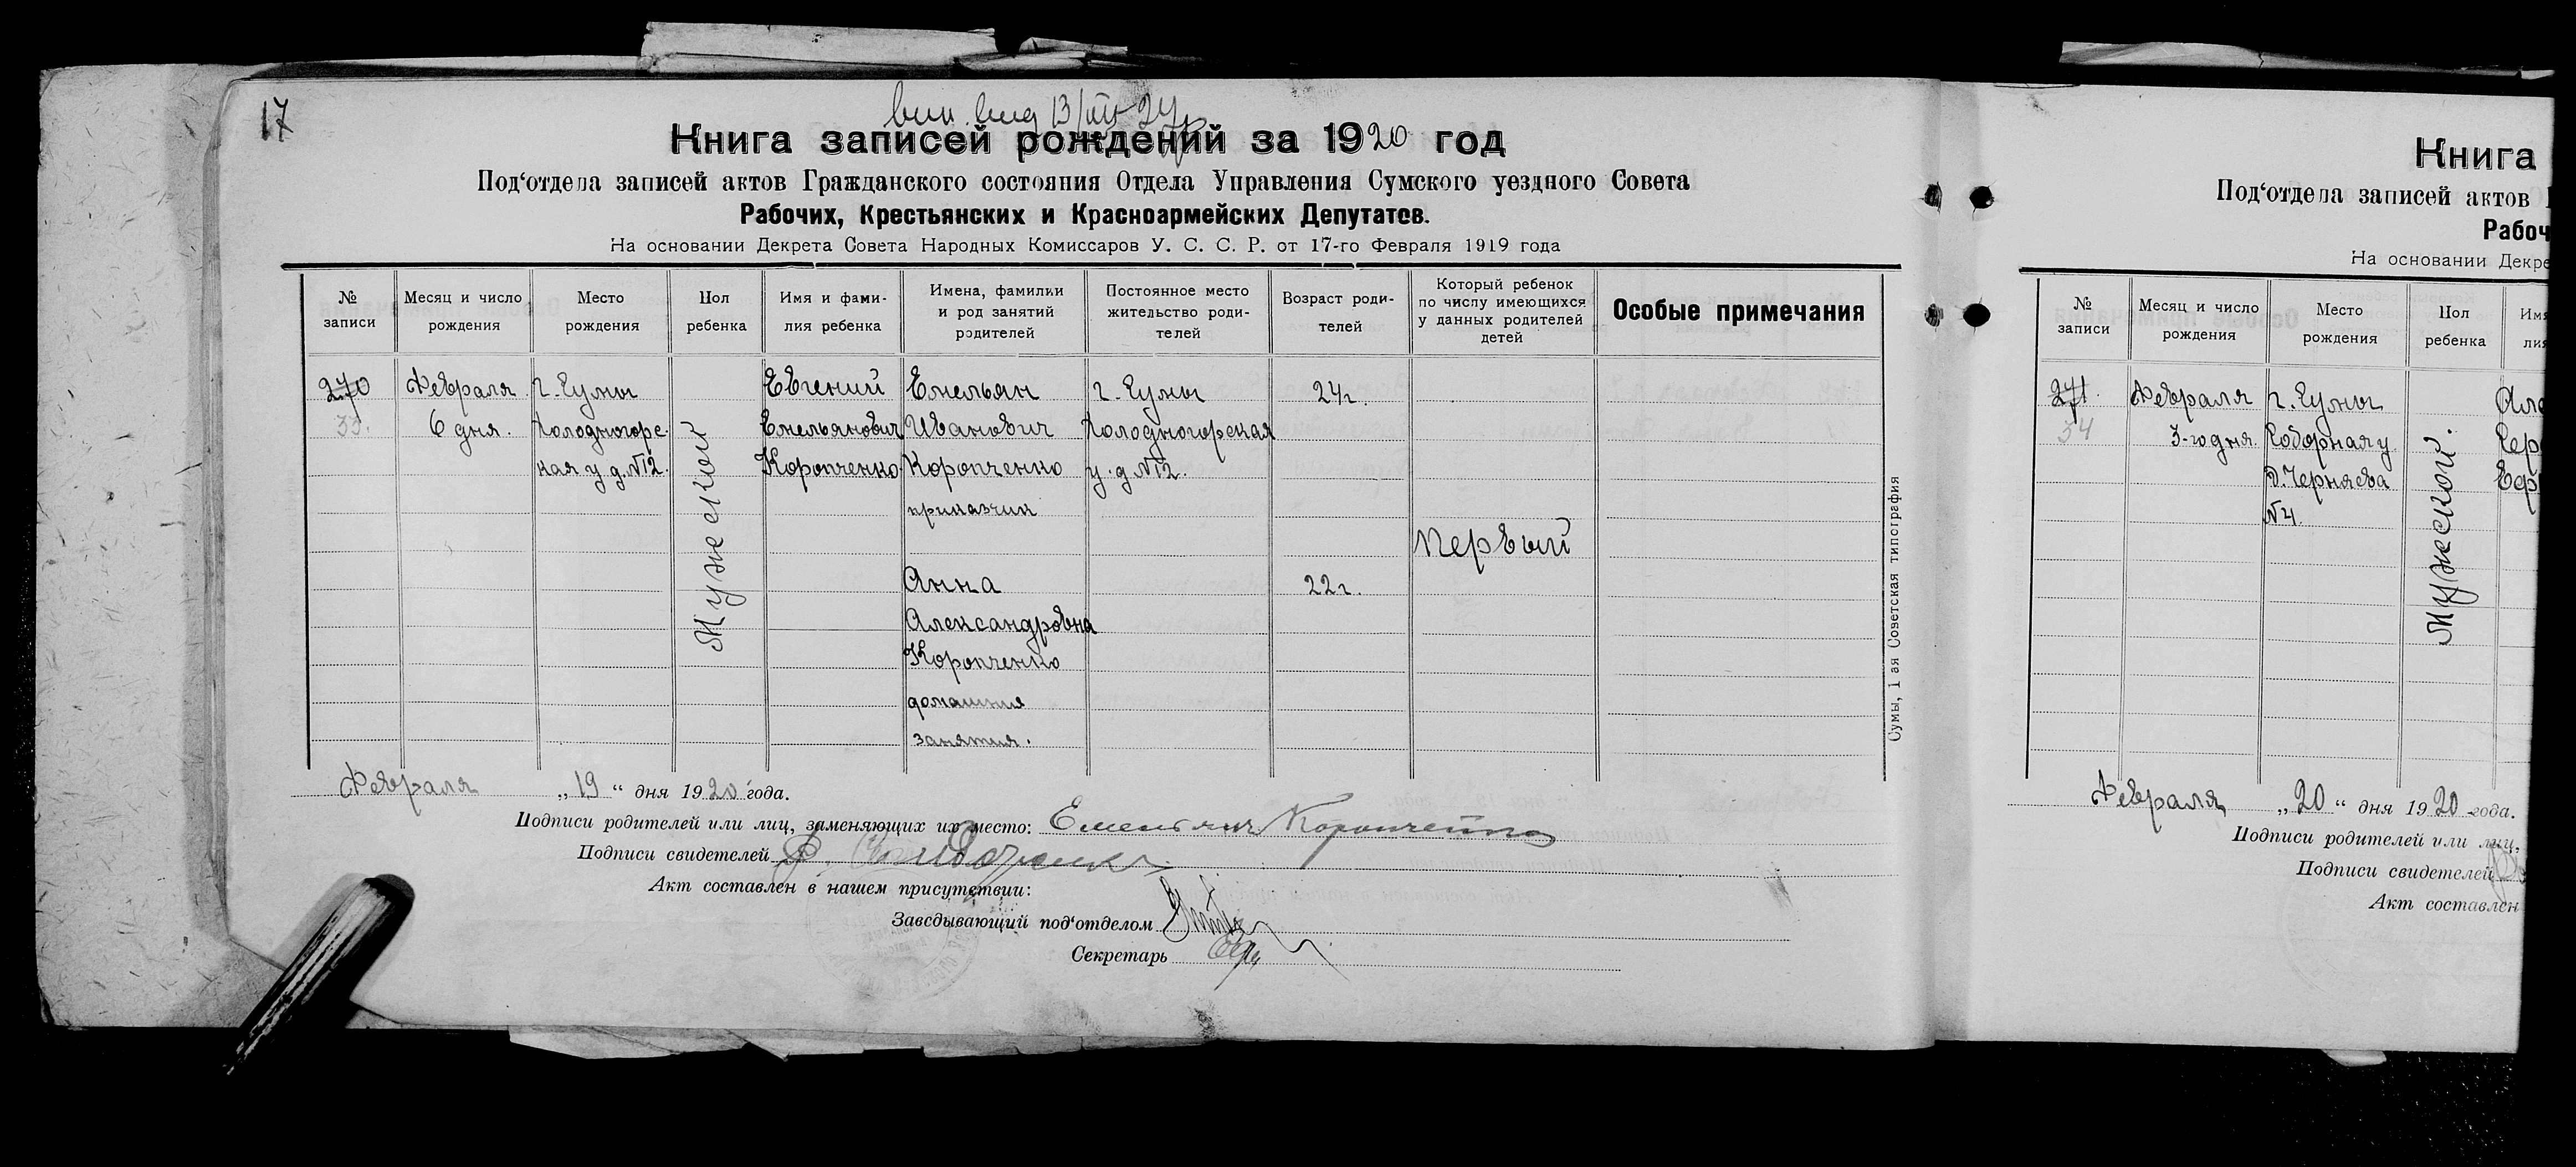 17
13/III 24
Книга записей рождений за 1920 год
Под‘отдела записей актов Гражданского состояния Отдела Управления Сумского уездного Совета
Рабочих, Крестьянских и Красноармейских Депутатов.
На основании Декрета Совета Народных Комиссаров У. С. С. Р. от 17-го Февраля 1919 года
№ записи
Месяц и число рождения
Место рождения
Пол ребенка
Имя и фами-лия ребенка
Имена, фамилии и род занятий родителей
Постоянное место жительство роди-телей
Возраст роди-телей
Который ребенок по числу имеющихся у данных родителей детей
Особые примечания
270
33.
Февраля
6 дня.
г. Сумы
Холодногорс-
кая у д. №12.
Мужской
Евгений
Емельянович
Коропченко
Емельян
Иванович
Коропченко
приказчик
Анна
Александровна
Коропченко
домашния
занятия.
г. Сумы
Холодногорская
у. д №12.
24 г.
22 г.
Первый
Сумы, 1 ая Советская типография
Февраля „19“ дня 1920 года.
Подписи родителей или лиц, заменяющих их место: Емельян Коропченко
Подписи свидетелей
Акт составлен в нашем присутствии:
Заведывающий под‘отделом
Секретарь
Книга
Под‘отдела записей актов
Рабоч
На основании Декре
№ записи
Месяц и число рождения
Место рождения
Пол ребенка
Имя
лия
271.
34
Февраля
3-го дня.
г. Сумы
Соборная у
д. Черняева
№4.
Мужской.
Але
Сер
Февраля „20“ дня 1920 года.
Подписи родителей или лиц,
Подписи свидетелей
Акт составлен